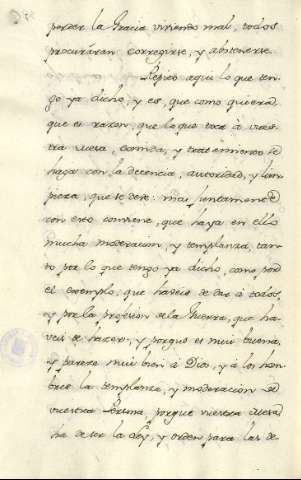 perder la Gracia viviendo mal, todos
procuráran corregirse, y abstenerse
Repito aqui lo que ten-
go ya dicho, y es, que como quiera,
que es razon, que lo que toca à vues-
tra mesa, comida, y tratamiento se
haga con la decencia, autoridad, y lim-
pieza, que se debe: mas juntamente
con esto conviene, que haya en ello
mucha moderacion, y templanza, tan-
to por lo que tengo ya dicho, como por
el exemplo, que habeis de dar à todos,
y por la profesion de la Guerra, que ha-
veis de hacer; y porque es mui buena,
y parece mui bien à Dios, y à los hom-
bres la templanza, y moderacion de
vuestra Persona, porque vuestra mesa
ha de ser la Ley, y orden para las de-